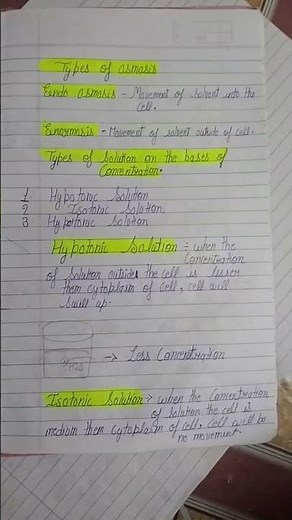 Types of osmosis
Endo osmosis - Movement of solvent into the
cell.
Exosmosis - Movement of solvent outside of cell.
Types of Solution on the bases of
Concentration.
1. Hypotonic Solution
2 Isotonic Solution
3 Hypertonic Solution
Hypotonic Solution :- when the
Concentration
of Solution outside the cell is lesser
them cytoplasm of cell, cell will
Swell up.
→ Less Concentration
Isotonic Solution :- when the Concentration
of solution the cell is
medium them cytoplasm of cell. Cell will be
no movement.